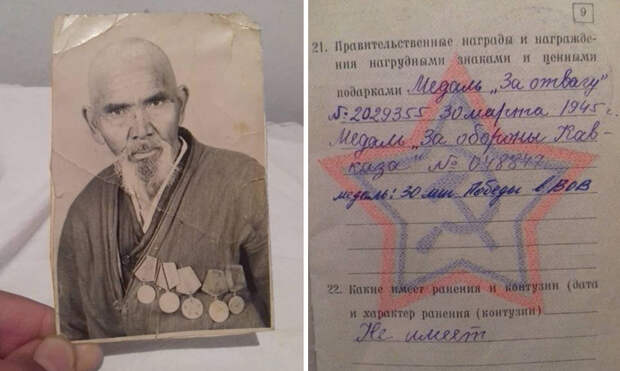 9
21. Правительственные награды и награжде-
ния нагрудными знаками и ценными
подарками Медаль „За отвагу"
№ 2029355 30 марта 1945 г.
Медаль „За обороны Кав-
каза" № 048847
медаль: 30 лет Победы в ВОВ
22. Какие имеет ранения и контузии (дата
и характер ранения (контузии)
Не имеет